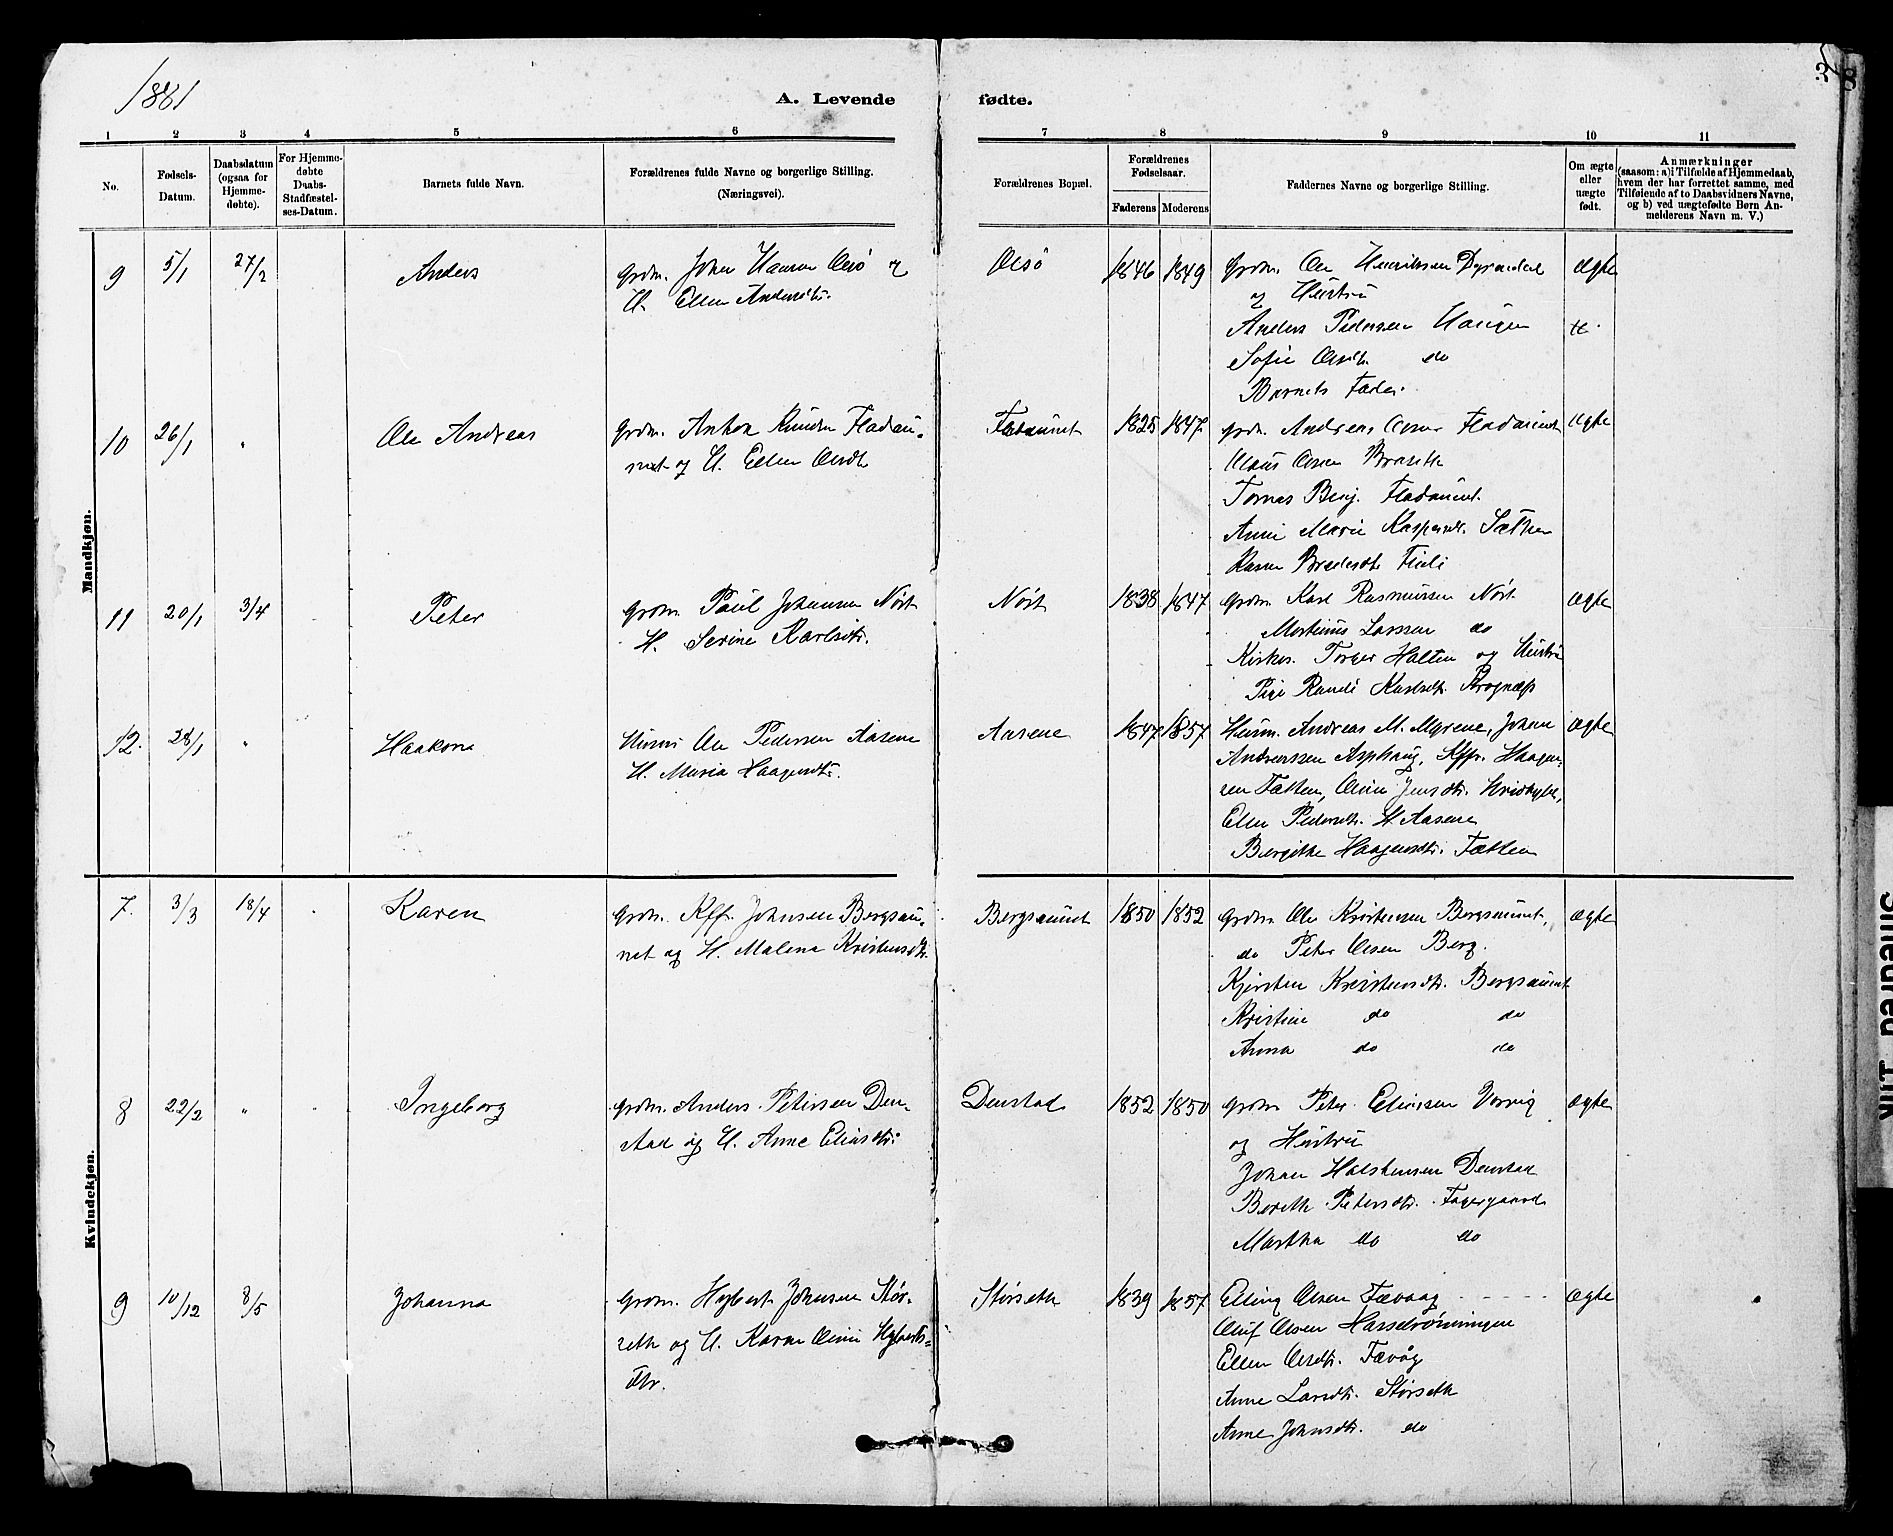 1881
A. Levende fødte.
3
8
1 2 3 4 5 6 7 8 9 10 11
No.
Fødsels-
Datum.
Daabsdatum
(ogsaa for
Hjemme-
døbte).
For Hjemme-
døbte
Daabs-
Stadfæstel-
ses-Datum.
Barnets fulde Navn.
Forældrenes fulde Navne og borgerlige Stilling.
(Næringsvei).
Forældrenes Bopæl.
Forældrenes
Fødselsaar.
Faderens Moderens
Faddernes Navne og borgerlige Stilling.
Om ægte
eller
uægte
født.
Anmærkninger
(saasom: a) i Tilfælde af Hjemmedaab,
hvem der har forrettet samme, med
Tilføiende af to Daabsvidners Navne,
og b) ved uægtefødte Børn An-
melderens Navn m. V.)
Mandkjøn.
9 5/1 27/2 Anders
Grdm. Johan Hansen Olsø og
H. Ellen Andersdtr.
Olsø 1846 1849
Grdm. Ole Henriksen
og Hustru
Anders Pedersen Haugen
Sofie Olsdtr. do
Barnets Fader.
Ægte
10 26/1 " Ole Andreas
Grdm. Anton Knudsen Fladau-
net og H. Ellen Olsdtr
Fladaunet 1825 1847
Grdm. Andreas Olsen Fladaunet
Claus Olsen
Tomas Benj. Fladaunet.
Anne Marie Kaspersdt. Sæther
Ægte
11 20/1 3/4 Peter
Grdm. Paul Johansen Nøst
H. Serine Karlsdtr.
Nøst 1838 1847
Grdm. Karl Rasmussen Nøst
Martinus Larssen do
Kirkes. Torger Halten og Hustru
Pige Randi Karlsdtr.
Ægte
12. 28/1 " Haakon
Ole Pedersen Aasene
H. Maria Haagensdtr.
Aasene 1847 1857
Husm. Andreas M. Myrene, Johan
Andreassen Asphaug, Kffr. Haagen-
sen Fætten, Jensdtr.
Ellen Pedersdtr. Aasene
Bergitte Haagensdtr. Fætten
Ægte
Kvindekjøn.
7. 3/3 18/4 Karen
Grdm. Kffr. Johnsen Bergsau-
net og H. Malena Kristensdtr.
Bergsaunet 1850 1852
Grdm. Ole Kristensen Bergsaunet,
do Peter Olsen Berg.
Kjersten Kristensdtr. Bergsaunet
Kristine do do
Anna do do
Ægte
8 22/2 " Ingeborg
Grdm. Anders Petersen Den-
stad og H. Anne Eliasdtr.
Denstad 1852 1850
Grdm Peter Eliassen
og Hustru
Johan Denstad
Berethe Petersdtr. Fagergaard
Martha do do
Ægte
9 10/12 8/5 Johanna
Grdm. Hybert Johnsen Stør-
seth og H. Karen Oline Hyberts-
dtr.
Størseth 1839 1857
Elling Olsen Fævaag
Oluf Olsen Hasselrønningen
Ellen Olsdtr. Fævåg
Anne Larsdtr. Størseth
Anne Johnsdtr. do
Ægte